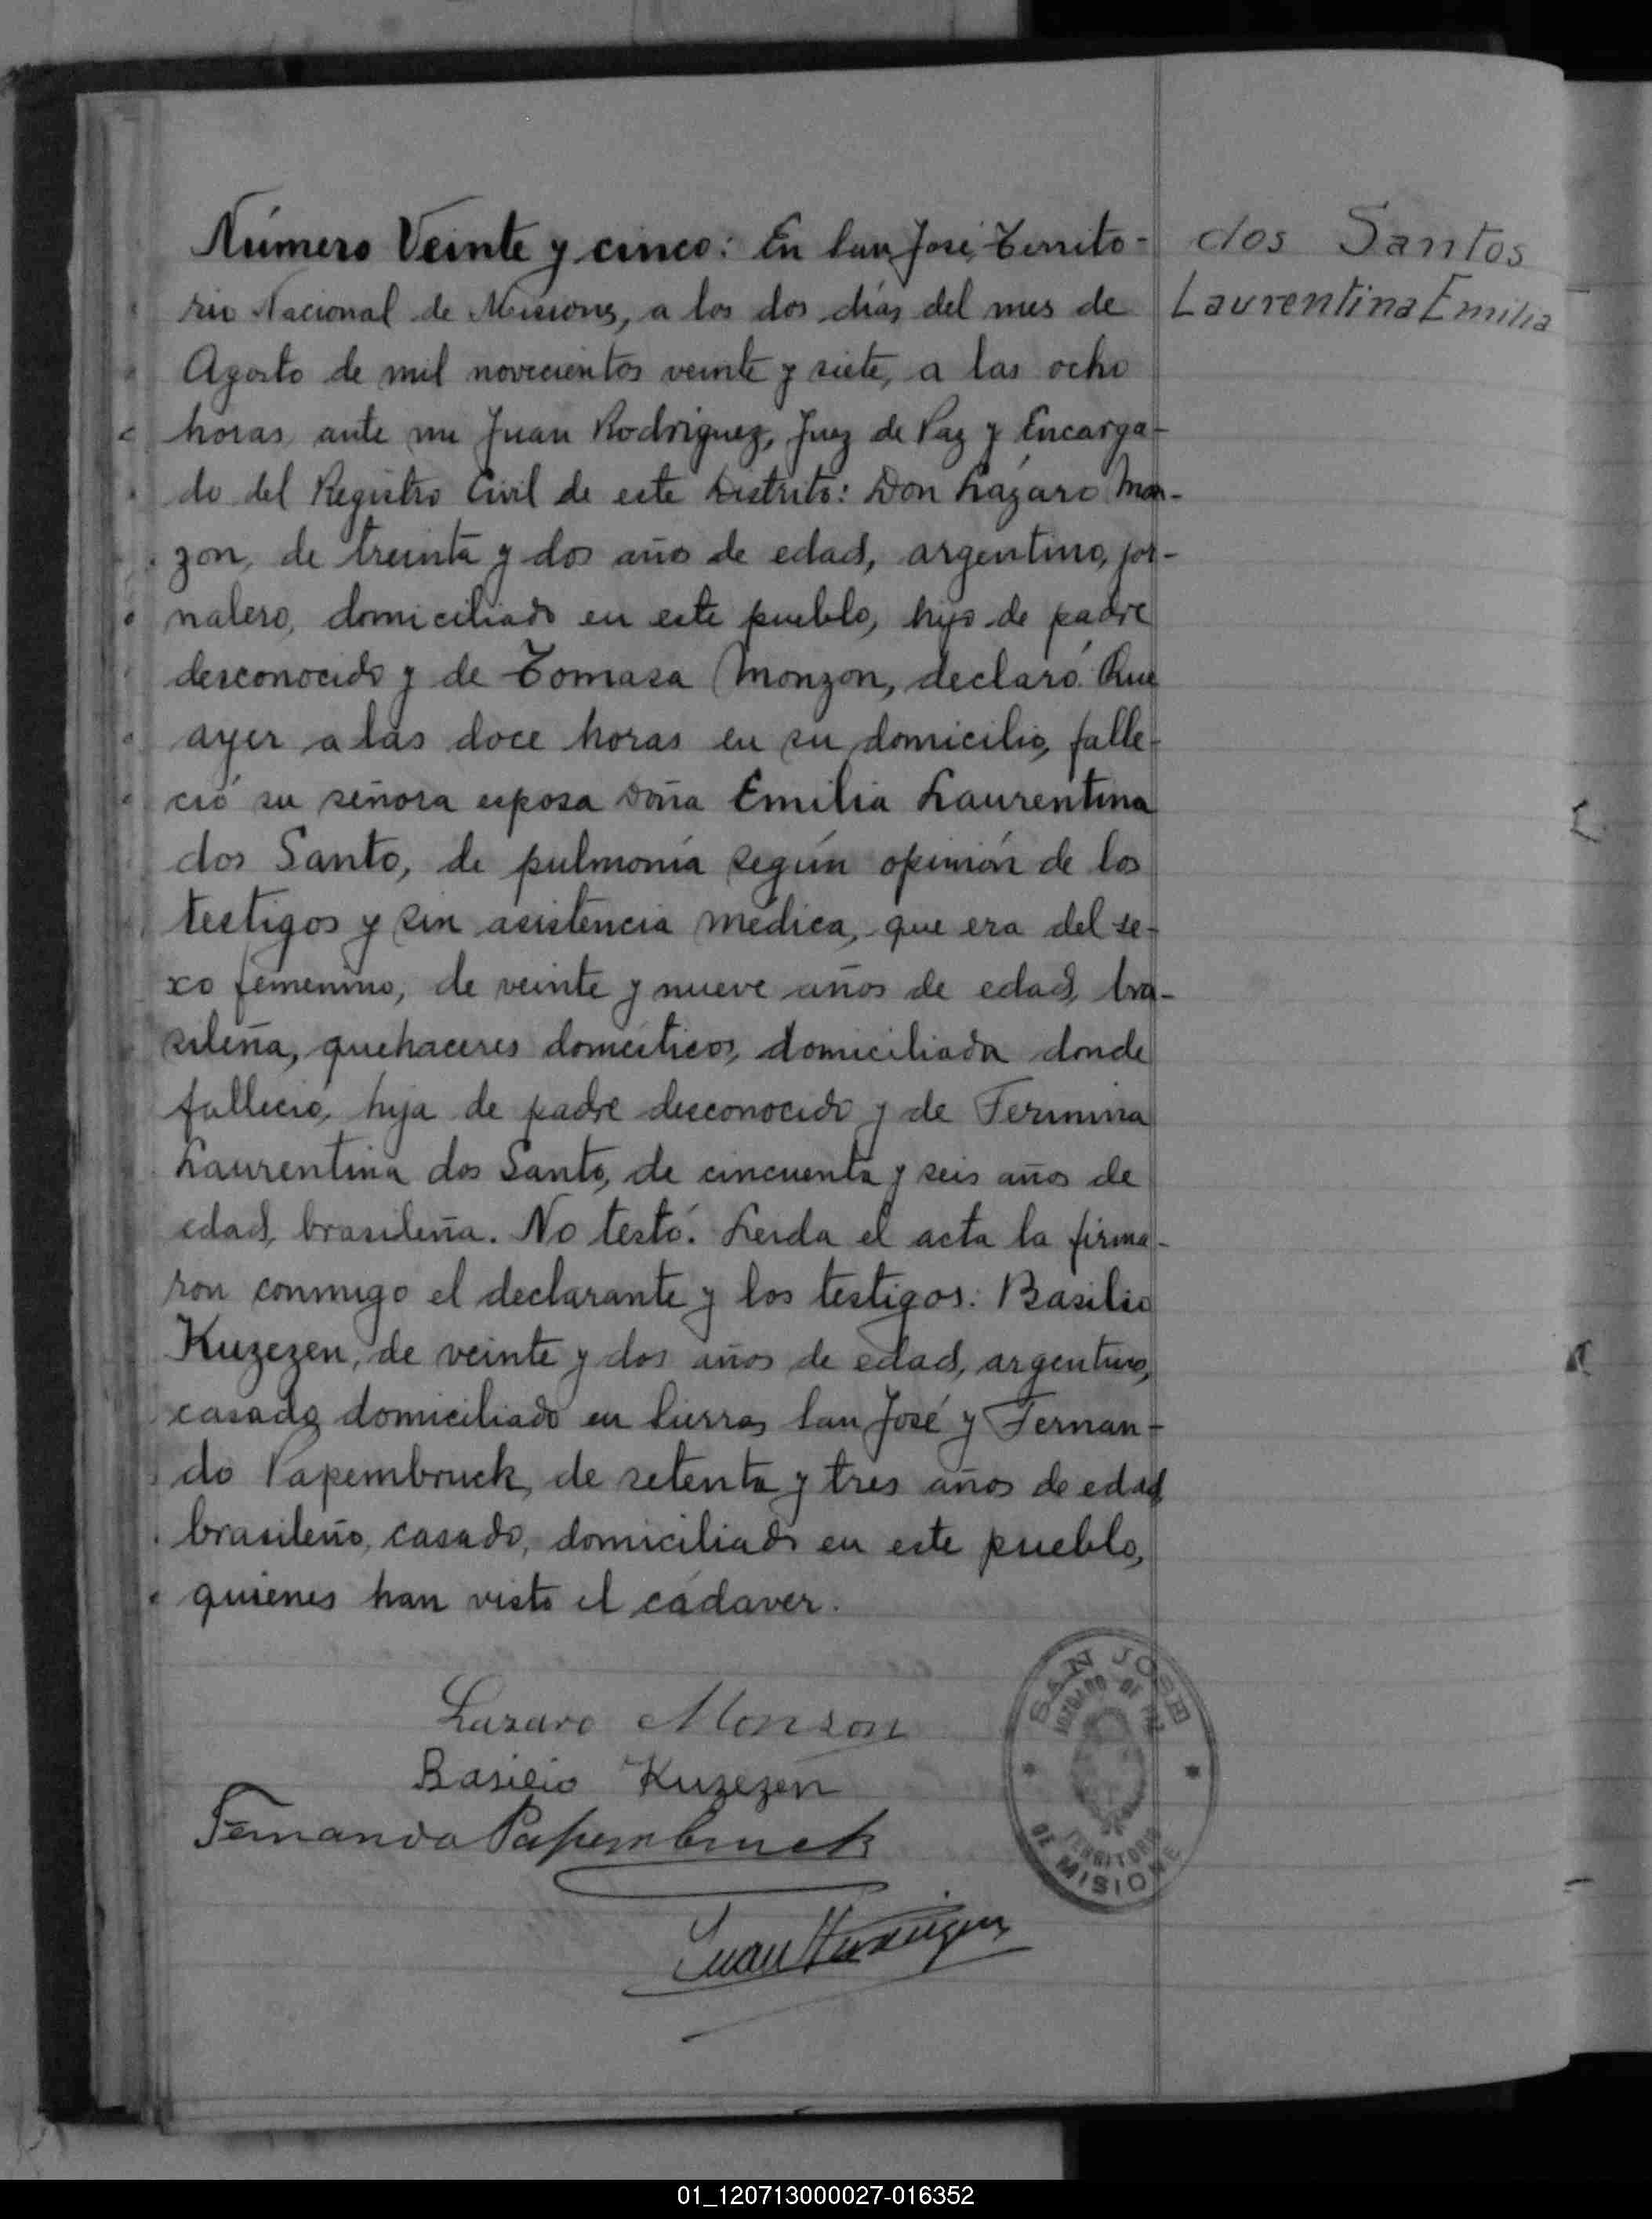 Número Veinte y cinco: En San José, Territo-
rio Nacional de Misiones, a los dos días del mes de
Agosto de mil novecientos veinte y siete, a las ocho
horas ante mi Juan Rodriguez, Juez de Paz y Encarga-
do del Registro Civil de este Distrito: Don Lázaro Mon-
zon, de treinta y dos años de edad, argentino, jor-
nalero, domiciliado en este pueblo, hijo de padre
desconocido y de Tomasa Monzon, declaró: Que
ayer a las doce horas en su domicilio, falle-
ció su señora esposa Doña Emilia Laurentina
dos Santo, de pulmonía según opinión de los
testigos y sin asistencia médica, que era del se-
xo femenino, de veinte y nueve años de edad, bra-
sileña, quehaceres domésticos, domiciliada donde
falleció, hija de padre desconocido y de Fermina
Laurentina dos Santo, de cincuenta y seis años de
edad, brasileña. No testó. Leida el acta la firma-
ron conmigo el declarante y los testigos: Basilio
Kuzezen, de veinte y dos años de edad, argentino,
casado domiciliado en Sierras San José y Fernan-
do Papembruck, de setenta y tres años de edad,
brasileño, casado, domiciliado en este pueblo,
quienes han visto el cádaver.
dos Santos
Laurentina Emilia
Lazaro Monzon
Basilio Kuzezen
Fernando Papembruck
Juan Rodriguez
SAN JOSE
JUZGADO DE PAZ
TERRITORIO
DE MISIONES
01_120713000027-016352